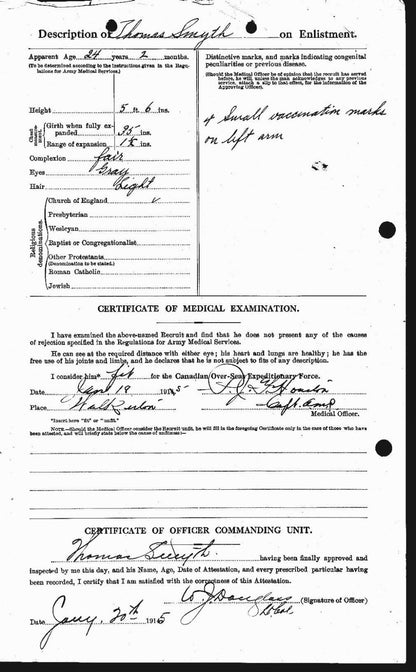 Description of Thomas Smyth on Enlistment.
Apparent Age 24 years 2 months.
(To be determined according to the instructions given in the Regulations for Army Medical Services.)
Height 5 ft 6 ins.
Chest measurement.
Girth when fully expanded 35 ins.
Range of expansion ins.
Complexion fair
Eyes Gray
Hair Light
Religious denominations.
Church of England v
Presbyterian
Wesleyan
Baptist or Congregationalist
Other Protestants
(Denomination to be stated.)
Roman Catholic
Jewish
Distinctive marks, and marks indicating congenital
peculiarities or previous disease.
(Should the Medical Officer be of opinion that the recruit has served
before, he will, unless the man acknowledges to any previous
service, attach a slip to that effect, for the information of the
Approving Officer).
4 Small vaccination marks
on left arm
CERTIFICATE OF MEDICAL EXAMINATION.
I have examined the above-named Recruit and find that he does not present any of the causes
of rejection specified in the Regulations for Army Medical Services.
He can see at the required distance with either eye; his heart and lungs are healthy; he has the
free use of his joints and limbs, and he declares that he is not subject to fits of any description.
I consider him* fit for the Canadian Over-Seas Expeditionary Force.
Date 19 1915
Place Walkerton
Medical Officer.
*Insert here "fit" or "unfit."
NOTE.—Should the Medical Officer consider the Recruit unfit, he will fill in the foregoing Certificate only in the case of those who
have been attested, and will briefly state below the cause of unfitness:—
CERTIFICATE OF OFFICER COMMANDING UNIT.
Thomas Smyth having been finally approved and
inspected by me this day, and his Name, Age, Date of Attestation, and every prescribed particular having
been recorded, I certify that I am satisfied with the correctness of this Attestation.
W J Douglass (Signature of Officer)
Date Jany 20th 1915